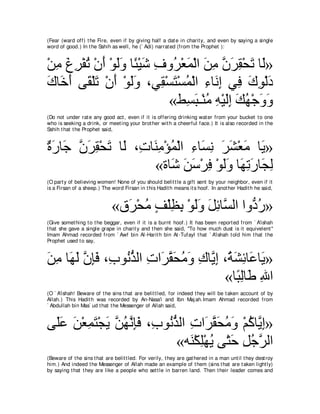 (Fear (ward off) the Fire, even if by giving half a date in charity, and even by saying a single
word of good.) In the Sahih as well, he (`Adi) narrated (from the Prophet ):
«لَا تَحْقِرَنَّ مِنَ الْمَعْرُوفِ شَيْئًا وَلَوْ أَنْ تُفْرِغَ مِنْ
دَلْوِكَ فِي إِنَاءِ الْمُسْتَسْقِي، وَلَوْ أَنْ تَلْقَى أَخَاكَ
وَوَجْهُكَ إِلَيْهِ مُنْبَسِطٌ»
(Do not under rate any good act, even if it is offering drinking water from your bucket to one
who is seeking a drink, or meeting your brother with a cheerful face.) It is also recorded in the
Sahih that the Prophet said,
«يَا مَعْشَرَ نِسَاءِ الْمُؤْمِنَاتِ، لَا تَحْقِرَنَّ جَارَةٌ
لِجَارَتِهَا وَلَوْ فِرْسَنَ شَاةٍ»
(O party of believing women! None of you should belittle a gift sent by your neighbor, even if it
is a Firsan of a sheep.) The word Firsan in this Hadith means its hoof. In another Hadith he said,
«رُدُّوا السَّائِلَ وَلَوْ بِظِلْفٍ مُحْرَقٍ»
(Give something to the beggar, even if it is a burnt hoof.) It has been reported from `A'ishah
that she gave a single grape in charity and then she said, "To how much dust is it equivalent"
Imam Ahmad recorded from `Awf bin Al-Harith bin At-Tufayl that `A'ishah told him that the
Prophet used to say,
«يَا عَائِشَةُ، إِيَّاكِ وَمُحَقَّرَاتِ الذُّنُوبِ، فَإِنَّ لَهَا مِنَ
اللهِ طَالِبًا»
(O `A'ishah! Beware of the sins that are belittled, for indeed they will be taken account of by
Allah.) This Hadith was recorded by An-Nasa'i and Ibn Majah. Imam Ahmad recorded from
`Abdullah bin Mas`ud that the Messenger of Allah said,
«إِيَّاكُمْ وَمُحَقَّرَاتِ الذُّنُوبِ، فَإِنَّهُنَّ يَجْتَمِعْنَ عَلَى
الرَّجُلِ حَتَّى يُهْلِكْنَه»
(Beware of the sins that are belittled. For verily, they are gathered in a man until they destroy
him.) And indeed the Messenger of Allah made an example of them (sins that are taken lightly)
by saying that they are like a people who settle in barren land. Then their leader comes and